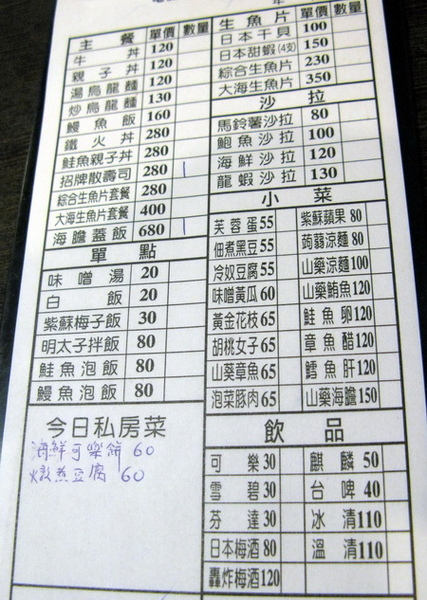 年
主餐 單價 數量
牛丼 120
親子丼 120
湯烏龍麵 120
炒烏龍麵 130
鰻魚飯 160
鐵火丼 280
鮭魚親子丼 280
招牌散壽司 280 |
綜合生魚片套餐 280
大海生魚片套餐 400
海膽蓋飯 680 |
單點
味噌湯 20
白飯 20
紫蘇梅子飯 30
明太子拌飯 80
鮭魚泡飯 80
鰻魚泡飯 80
今日私房菜
海鮮可樂餅 60
燉煮豆腐 60
生魚片 單價 數量
日本干貝 100
日本甜蝦(4支) 150
綜合生魚片 230
大海生魚片 350
沙拉
馬鈴薯沙拉 80
鮑魚沙拉 100
海鮮沙拉 120
龍蝦沙拉 130
小菜
芙蓉蛋 55 紫蘇蘋果 80
佃煮黑豆 55 蒟蒻涼麵 80
冷奴豆腐 55 山藥涼麵 100
味噌黃瓜 60 山藥鮪魚 120
黃金花枝 65 鮭魚卵 120
胡桃女子 65 章魚醋 120
山葵章魚 65 鱈魚肝 120
泡菜豚肉 65 山藥海膽 150
飲品
可樂 30 麒麟 50
雪碧 30 台啤 40
芬達 30 冰清 110
日本梅酒 80 溫清 110
轟炸梅酒 120